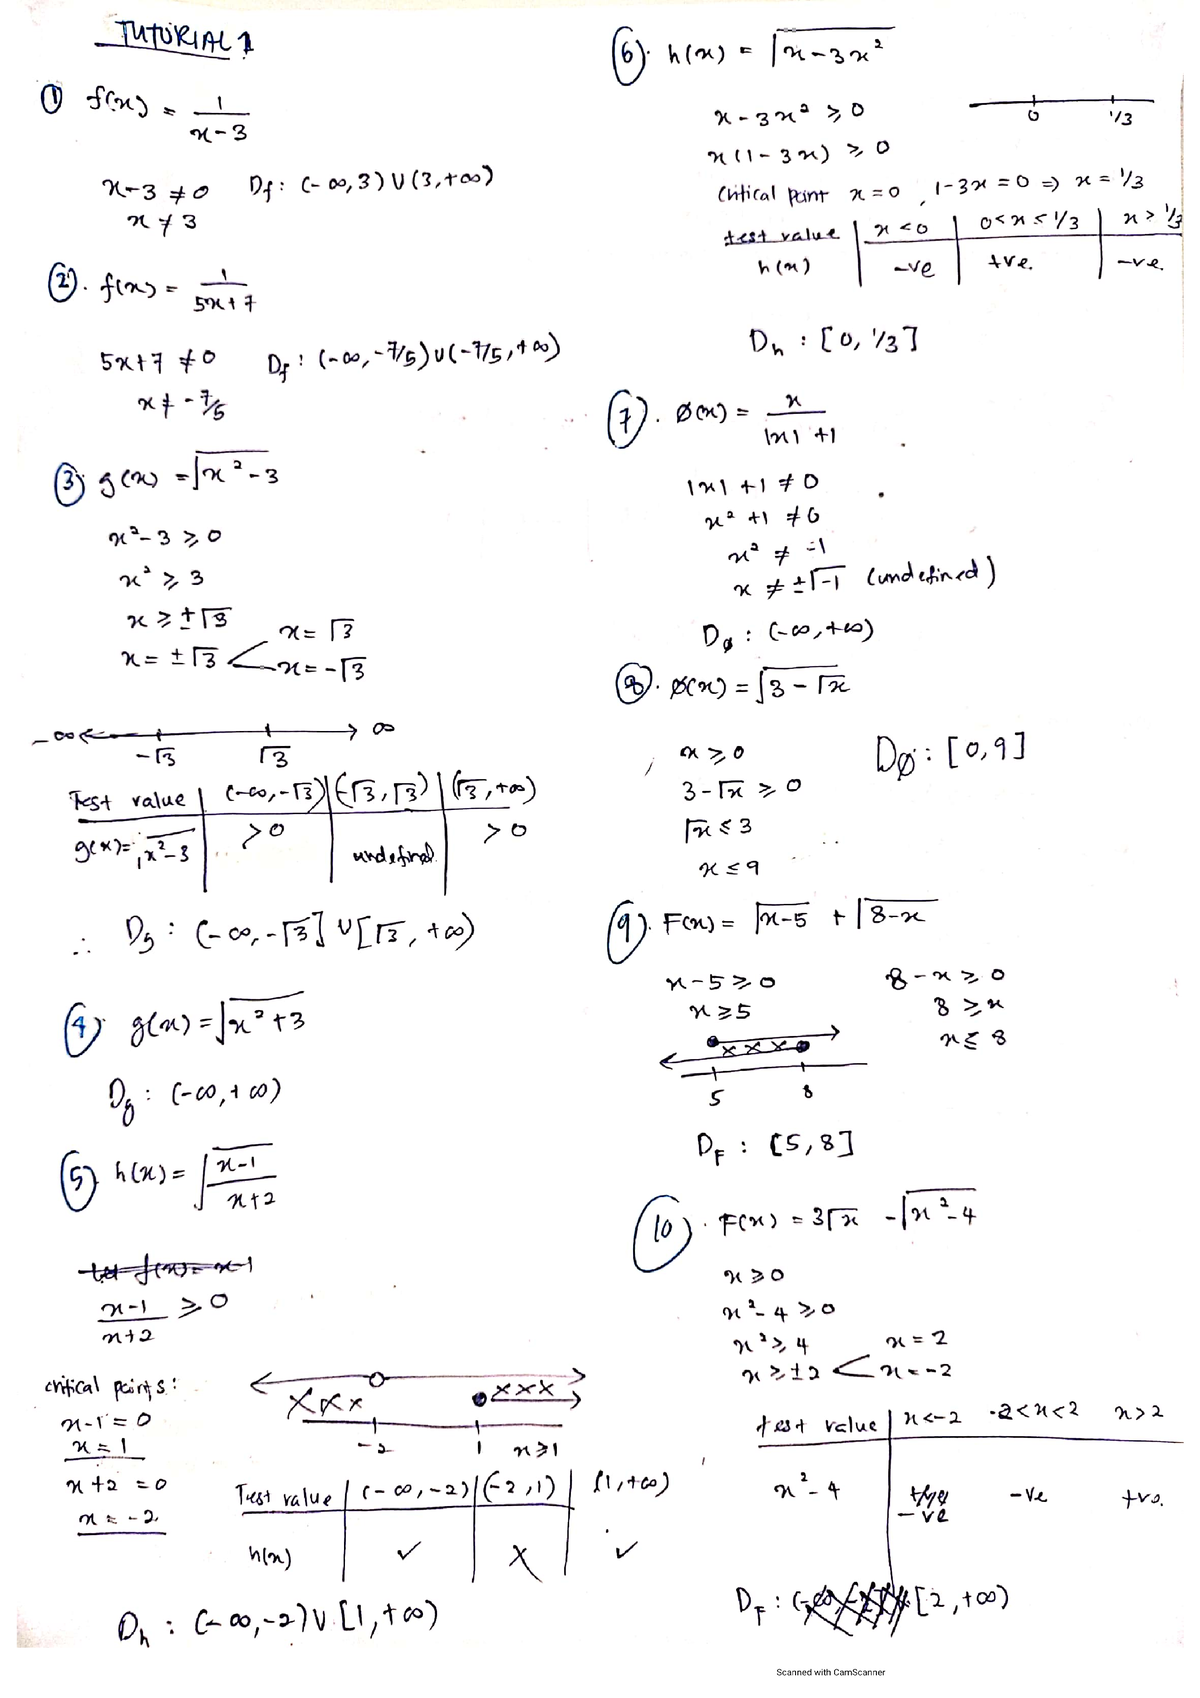 TUTORIAL 1
① f(x) = 1/(x-3)
x-3 ≠ 0 Df: (-∞,3) ∪ (3,+∞)
x ≠ 3
②. f(x) = 1/(5x+7)
5x+7 ≠ 0 Df: (-∞,-7/5) ∪ (-7/5,+∞)
x ≠ -7/5
③ g(x) = √(x²-3)
x²-3 ≥ 0
x² ≥ 3
x ≥ ±√3
x = ±√3 < x = √3
x = -√3
-∞ ∞
-√3 √3
Test value | (-∞,-√3) | (-√3,√3) | (√3,+∞)
g(x) = √(x²-3) | >0 | undefined | >0
∴ Dg : (-∞,-√3] ∪ [√3,+∞)
④ g(x) = √(x²+3)
Dg : (-∞,+∞)
⑤ h(x) = √((x-1)/(x+2))
let f(x) = x-1
(x-1)/(x+2) ≥ 0
critical points:
x-1 = 0
x = 1
x+2 = 0
x = -2
xxx xxx
-2 1 x≥1
Test value | (-∞,-2) | (-2,1) | (1,+∞)
h(x) | ✓ | X | ✓
Dh : (-∞,-2) ∪ [1,+∞)
⑥. h(x) = √(x-3x²)
x-3x² ≥ 0
0 1/3
x(1-3x) ≥ 0
Critical point x=0, 1-3x=0 ⇒ x=1/3
test value | x<0 | 0<x≤1/3 | x>1/3
h(x) | -ve | +ve. | -ve.
Dh : [0,1/3]
⑦. Ø(x) = x/(|x|+1)
|x|+1 ≠ 0
x²+1 ≠ 0
x² ≠ -1
x ≠ ±√-1 (undefined)
DØ : (-∞,+∞)
⑧. Ø(x) = √(3-√x)
x ≥ 0 DØ : [0,9]
3-√x ≥ 0
√x ≤ 3
x ≤ 9
⑨. F(x) = √(x-5) + √(8-x)
x-5 ≥ 0 8-x ≥ 0
x ≥ 5 8 ≥ x
x ≤ 8
xxx
5 8
DF : [5,8]
⑩. F(x) = 3√x - √(x²-4)
x ≥ 0
x²-4 ≥ 0
x² ≥ 4 x = 2
x ≥ ±2 < x = -2
test value | x<-2 -2<x<2 x>2
x²-4 | +ve -ve +ve.
-ve
DF : [2,+∞)
Scanned with CamScanner